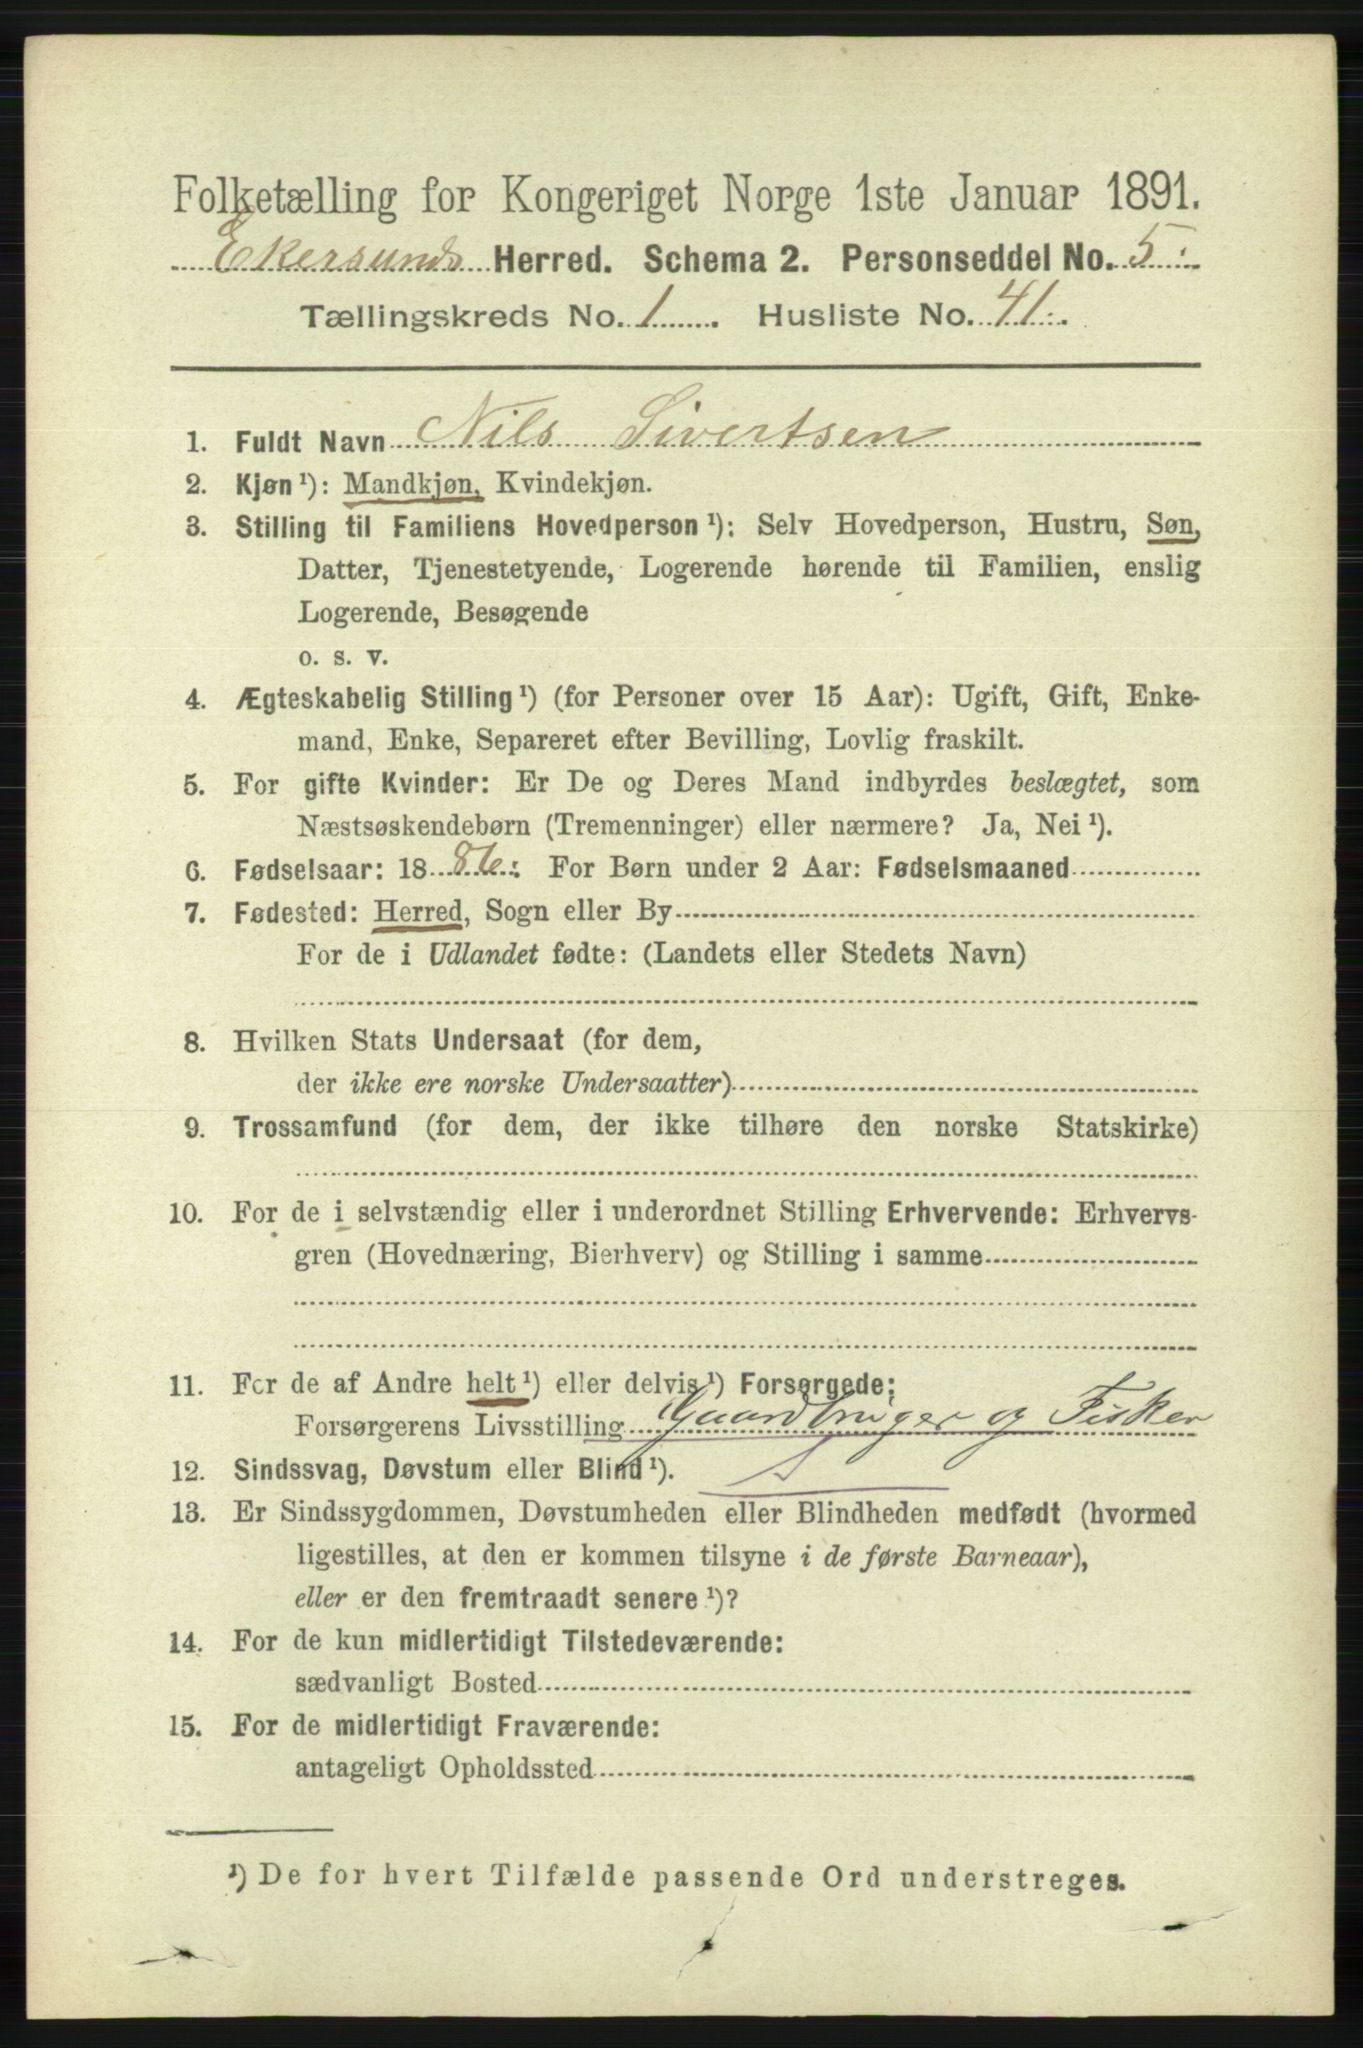 Folketælling for Kongeriget Norge 1ste Januar 1891.
Ekersunds Herred. Schema 2. Personseddel No. 5.
Tællingskreds No. 1. Husliste No. 41.
1. Fuldt Navn Nils Sivertsen
2. Kjøn ¹): Mandkjøn, Kvindekjøn.
3. Stilling til Familiens Hovedperson ¹): Selv Hovedperson, Hustru, Søn,
Datter, Tjenestetyende, Logerende hørende til Familien, enslig
Logerende, Besøgende
o. s. v.
4. Ægteskabelig Stilling ¹) (for Personer over 15 Aar): Ugift, Gift, Enke-
mand, Enke, Separeret efter Bevilling, Lovlig fraskilt.
5. For gifte Kvinder: Er De og Deres Mand indbyrdes beslægtet, som
Næstsøskendebørn (Tremenninger) eller nærmere? Ja, Nei ¹).
6. Fødselsaar: 1886: For Børn under 2 Aar: Fødselsmaaned
7. Fødested: Herred, Sogn eller By
For de i Udlandet fødte: (Landets eller Stedets Navn)
8. Hvilken Stats Undersaat (for dem,
der ikke ere norske Undersaatter)
9. Trossamfund (for dem, der ikke tilhøre den norske Statskirke)
10. For de i selvstændig eller i underordnet Stilling Erhvervende: Erhvervs-
gren (Hovednæring, Bierhverv) og Stilling i samme
11. For de af Andre helt ¹) eller delvis ¹) Forsørgede:
Forsørgerens Livsstilling Gaardbruger og Fisker
12. Sindssvag, Døvstum eller Blind ¹). S
13. Er Sindssygdommen, Døvstumheden eller Blindheden medfødt (hvormed
ligestilles, at den er kommen tilsyne i de første Barneaar),
eller er den fremtraadt senere ¹)?
14. For de kun midlertidigt Tilstedeværende:
sædvanligt Bosted
15. For de midlertidigt Fraværende:
antageligt Opholdssted
¹) De for hvert Tilfælde passende Ord understreges.